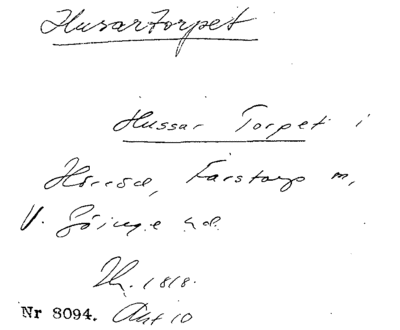 Husartorpet
Hussar Torpet i
Hörröd, Farstorp m,
V. Göinge hd.
1818.
Nr 8094. Akt 10